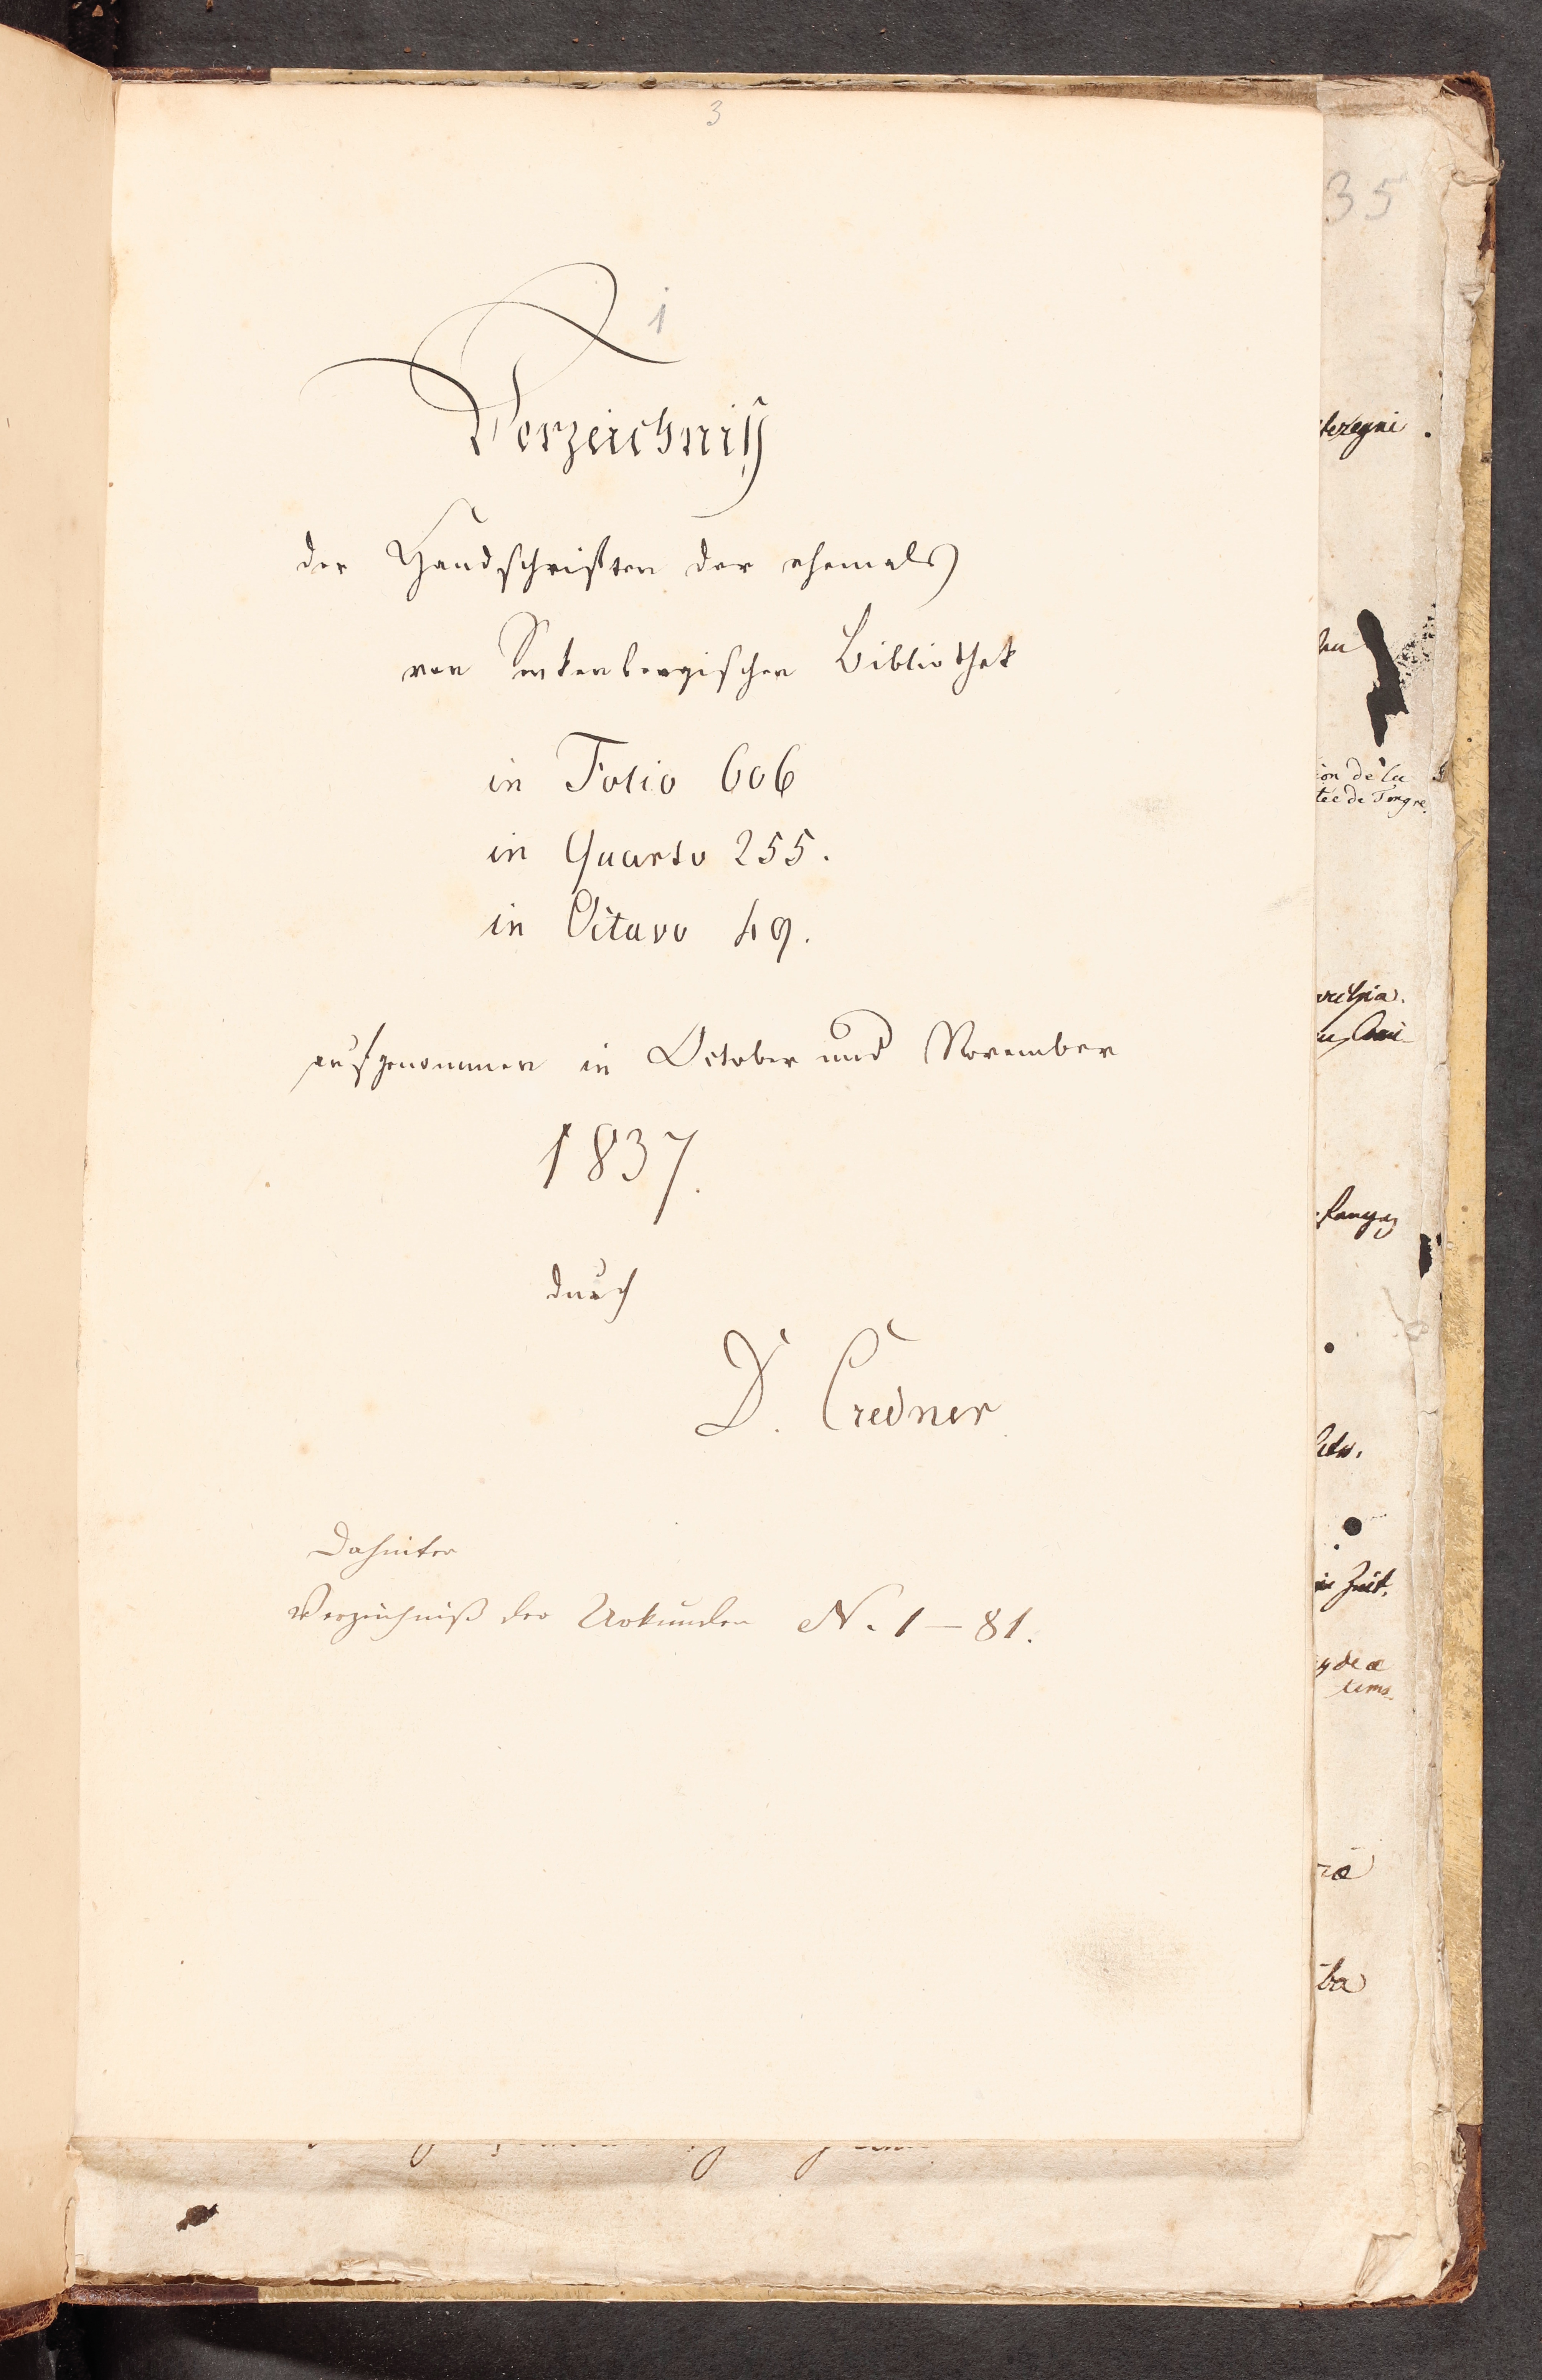 3
1
Verzeichniß
der Handschriften der ehemals
von Senkenbergischen Bibliothek
in Folio 606
in Quarto 255.
in Octavo 49.
aufgenommen in October und November
1837.
durch
D. Credner
Dahinter
Verzeichniß der Urkunden N. 1–81.
35
ion de la